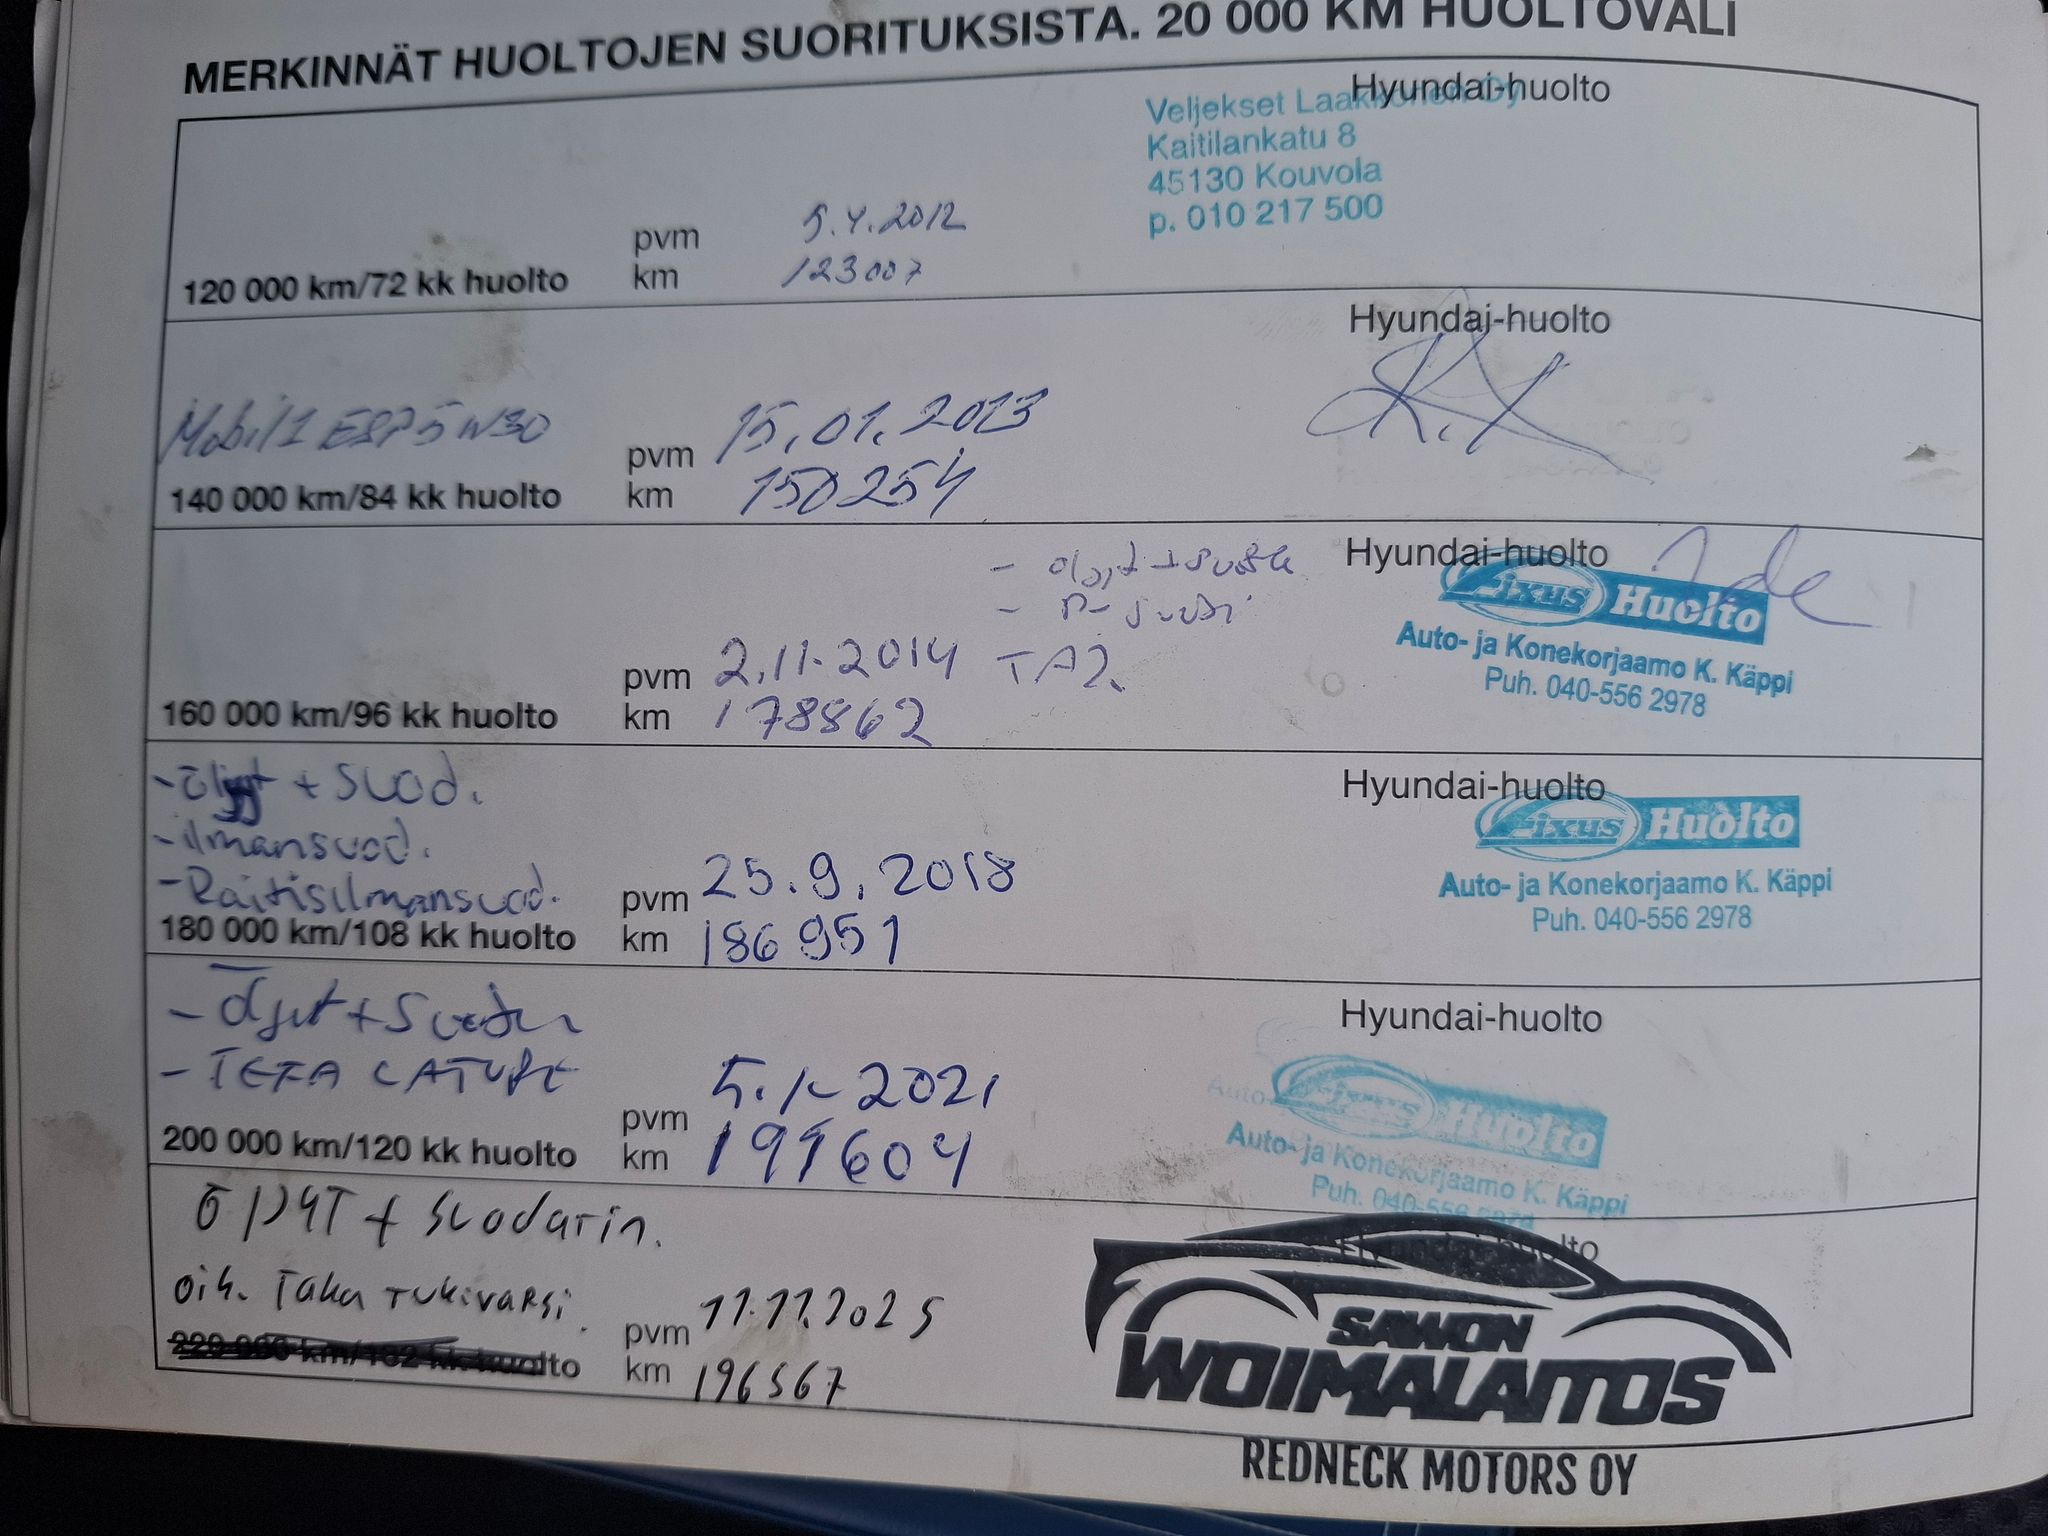 MERKINNÄT HUOLTOJEN SUORITUKSISTA. 20 000 KM HUOLTOVÄLI
Hyundai-huolto
Veljekset Laakkonen Oy
Kaitilankatu 8
45130 Kouvola
p. 010 217 500
pvm 5.4.2012
120 000 km/72 kk huolto km 123007
Hyundai-huolto
Mobil 1 ESP 5W30
pvm 15.01.2013
140 000 km/84 kk huolto km 150254
Hyundai-huolto
Fixus Huolto
Auto- ja Konekorjaamo K. Käppi
Puh. 040-556 2978
pvm 2.11.2014
160 000 km/96 kk huolto km 178862
- öljyt + suod.
- ilmansuod.
- Raitisilmansuod.
Hyundai-huolto
Fixus Huolto
Auto- ja Konekorjaamo K. Käppi
Puh. 040-556 2978
pvm 25.9.2018
180 000 km/108 kk huolto km 186951
- Öljyt +
Hyundai-huolto
Fixus Huolto
Auto- ja Konekorjaamo K. Käppi
Puh. 040-556 2978
pvm 2021
200 000 km/120 kk huolto km
ÖljyT + Suodatin.
oik. Taka Tukivarsi.
Hyundai-huolto
pvm 11.11.2025
220 000 km/132 kk huolto km 196567
SAWON
WOIMALAITOS
REDNECK MOTORS OY